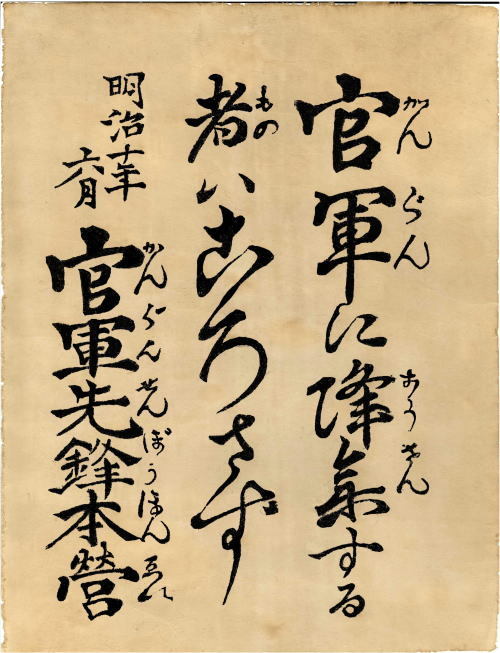 官軍に降参する
者ハころさず
明治十年
六月
官軍先鋒本營
かんぐん
かうさん
もの
かんぐんせんぽうほんゑい